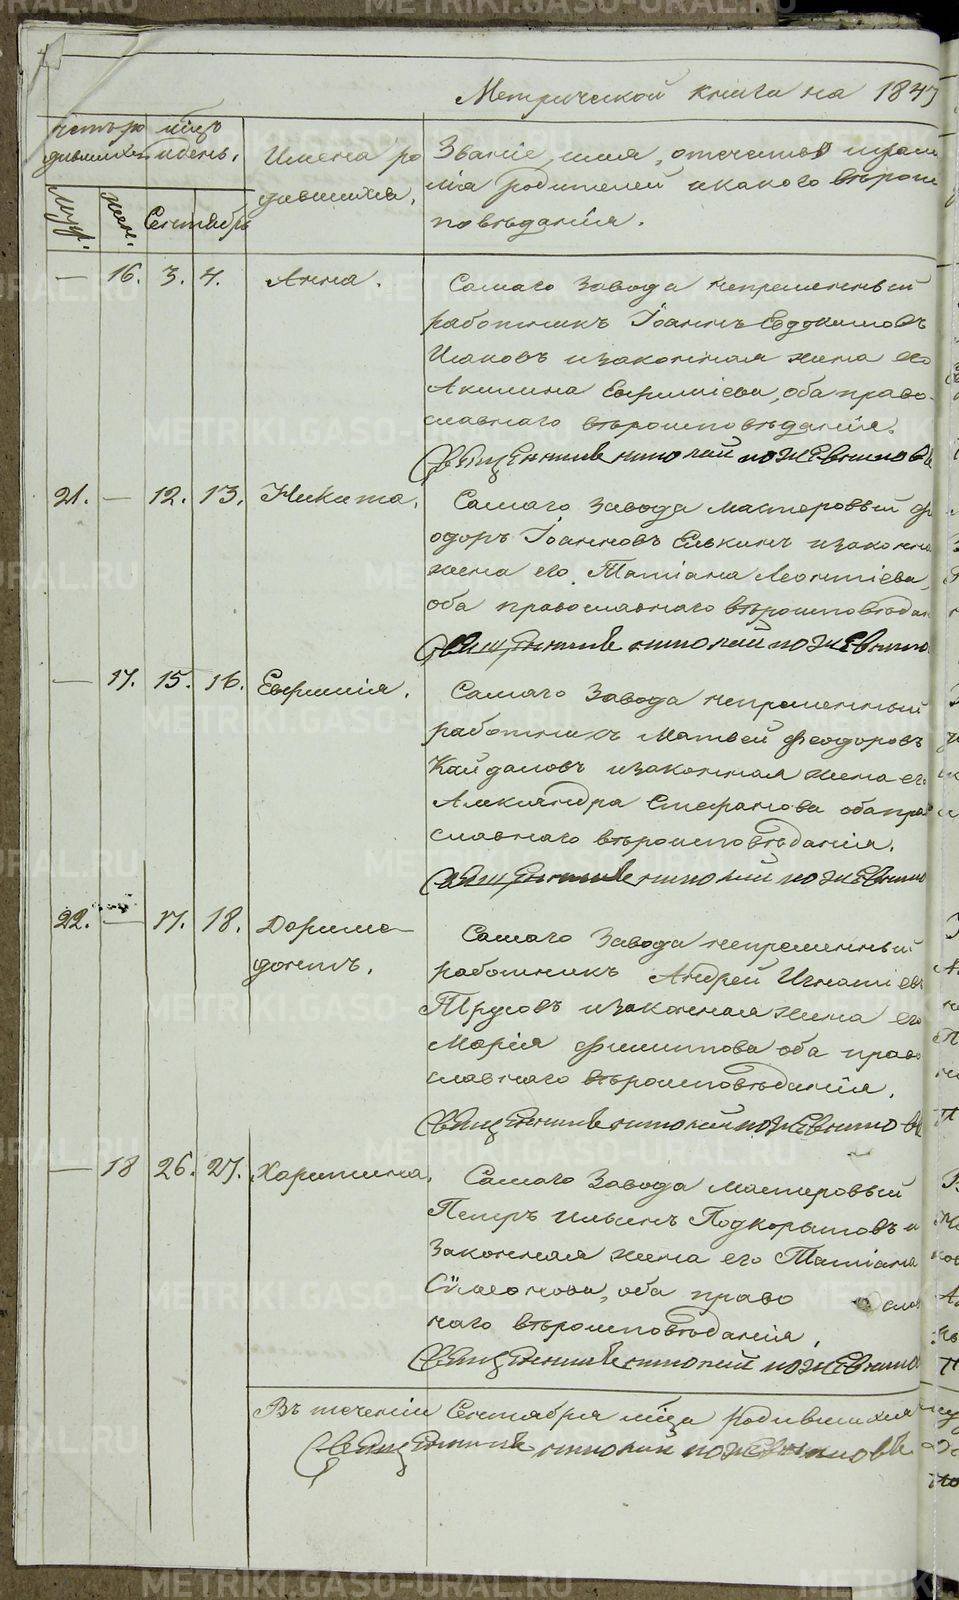 Метрической книга на 1847
родившихся
мѣць
и день.
Имена ро
дившихся.
Званіе, имя, отчество и фами
лія родителей и какого вѣроис
повѣданія.
Муж.
жен.
Сентябрь
— 16. 3. 4. Анна.
Самаго Завода непременный
работникъ Іоаннъ Евдокимовъ
Исаковъ и законная жена его
Акилина Евфиміева, оба право-
славнаго вѣроисповѣданія.
Священник Николай Ножевников
21. — 12. 13. Никита.
Самаго Завода мастеровый Фе
одоръ Іоанновъ Елькинъ и законна
жена его Татіана Леонтіева,
оба православнаго вѣроисповѣдан
Священник Николай Ножевнико
— 17. 15. 16. Евфимія.
Самаго Завода непременный
работникъ Матвей Феодоровъ
Кайдаловъ и законная жена его
Александра Стефанова оба прав
славнаго вѣроисповѣданія.
Священник Николай Ножевнико
22. — 17. 18. Дориме-
донтъ.
Самаго Завода непременный
работникъ Андрей Игнатіев
Трусовъ и законная жена его
Марія Филиппова оба право
славнаго вѣроисповѣданія.
Священник Николай Ножевников
— 18 26. 27. Харитина.
Самаго Завода мастеровый
Петръ Ильинъ Подкорытовъ и
Законная жена его Татіана
оба право слав
наго вѣроисповѣданія.
Священник Николай Ножевнико
Въ теченіи Сентября мѣца родившихся
Священник Николай Ножевников
METRIKI.GASO-URAL.RU